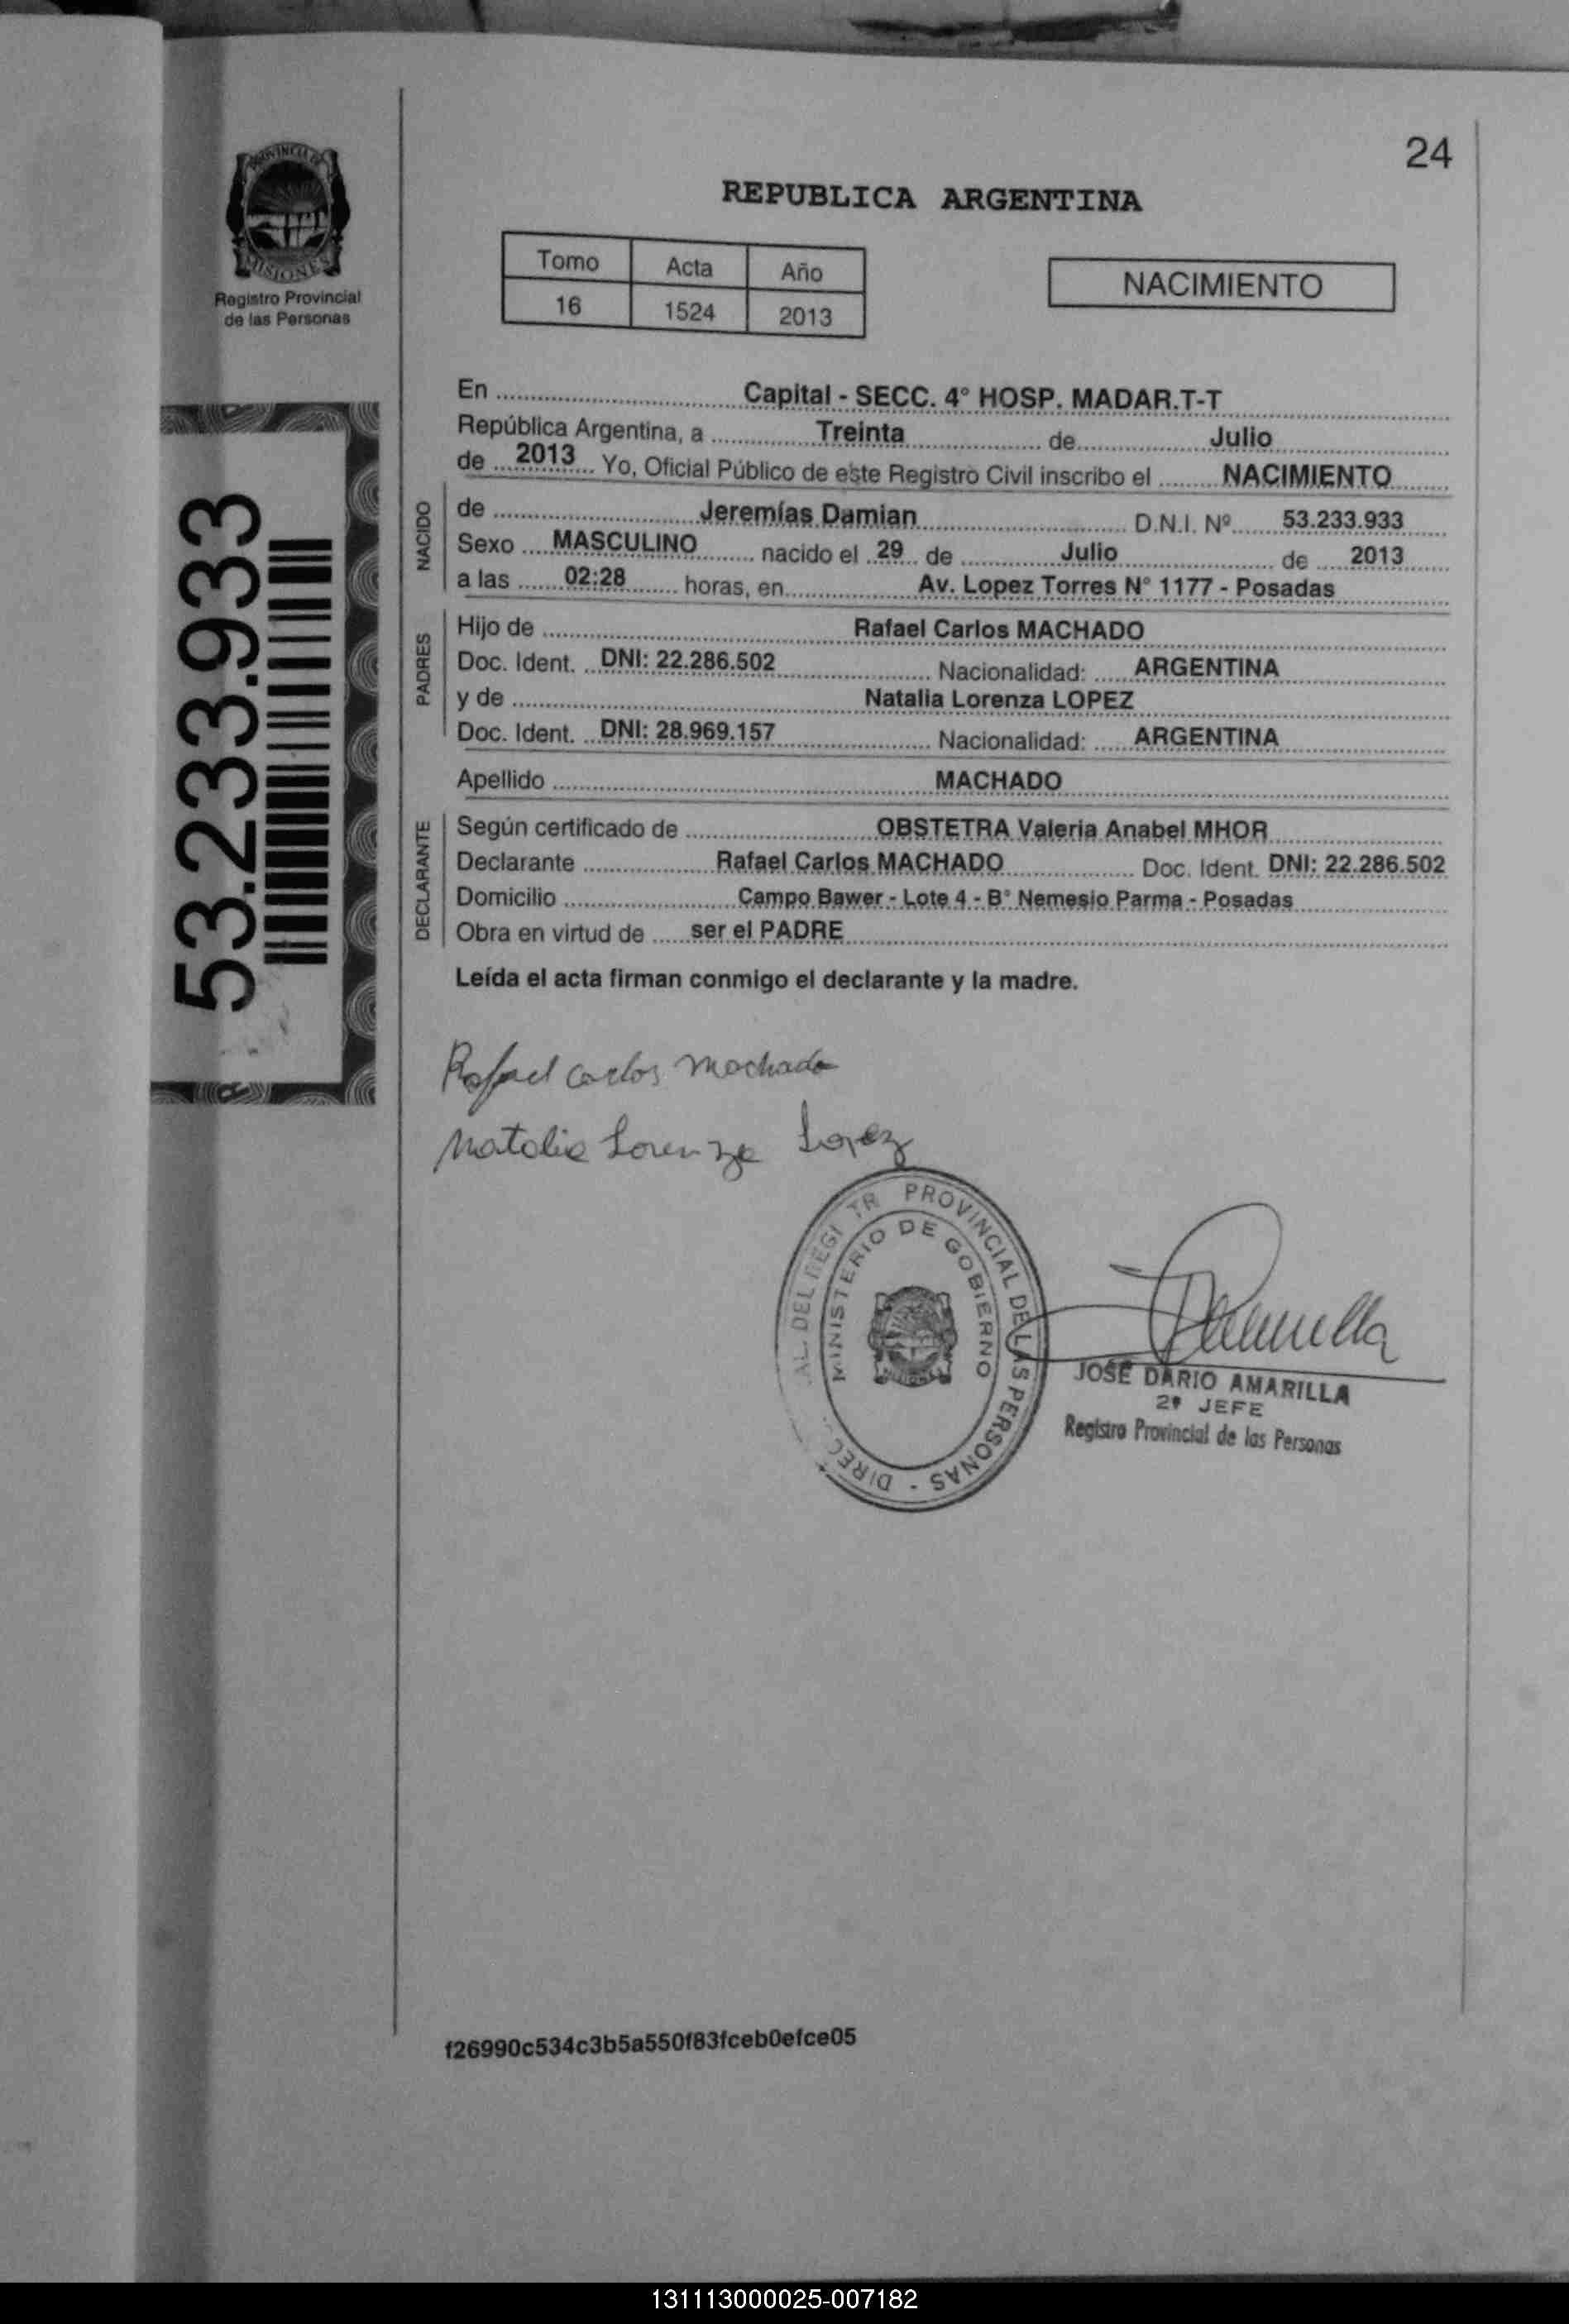 24
PROVINCIA DE
MISIONES
Registro Provincial
de las Personas
REPUBLICA ARGENTINA
Tomo Acta Año
16 1524 2013
NACIMIENTO
53.233.933
En Capital - SECC. 4° HOSP. MADAR.T-T
República Argentina, a Treinta de Julio
de 2013 Yo, Oficial Público de este Registro Civil inscribo el NACIMIENTO
NACIDO
de Jeremías Damian D.N.I. Nº 53.233.933
Sexo MASCULINO nacido el 29 de Julio de 2013
a las 02:28 horas, en Av. Lopez Torres N° 1177 - Posadas
PADRES
Hijo de Rafael Carlos MACHADO
Doc. Ident. DNI: 22.286.502 Nacionalidad: ARGENTINA
y de Natalia Lorenza LOPEZ
Doc. Ident. DNI: 28.969.157 Nacionalidad: ARGENTINA
Apellido MACHADO
DECLARANTE
Según certificado de OBSTETRA Valeria Anabel MHOR
Declarante Rafael Carlos MACHADO Doc. Ident. DNI: 22.286.502
Domicilio Campo Bawer - Lote 4 - B° Nemesio Parma - Posadas
Obra en virtud de ser el PADRE
Leída el acta firman conmigo el declarante y la madre.
Rafael Carlos Machado
Natalia Lorenza Lopez
PROVINCIAL DE LAS PERSONAS
MINISTERIO DE GOBIERNO
JOSE DARIO AMARILLA
2º JEFE
Registro Provincial de las Personas
f26990c534c3b5a550f83fceb0efce05
131113000025-007182